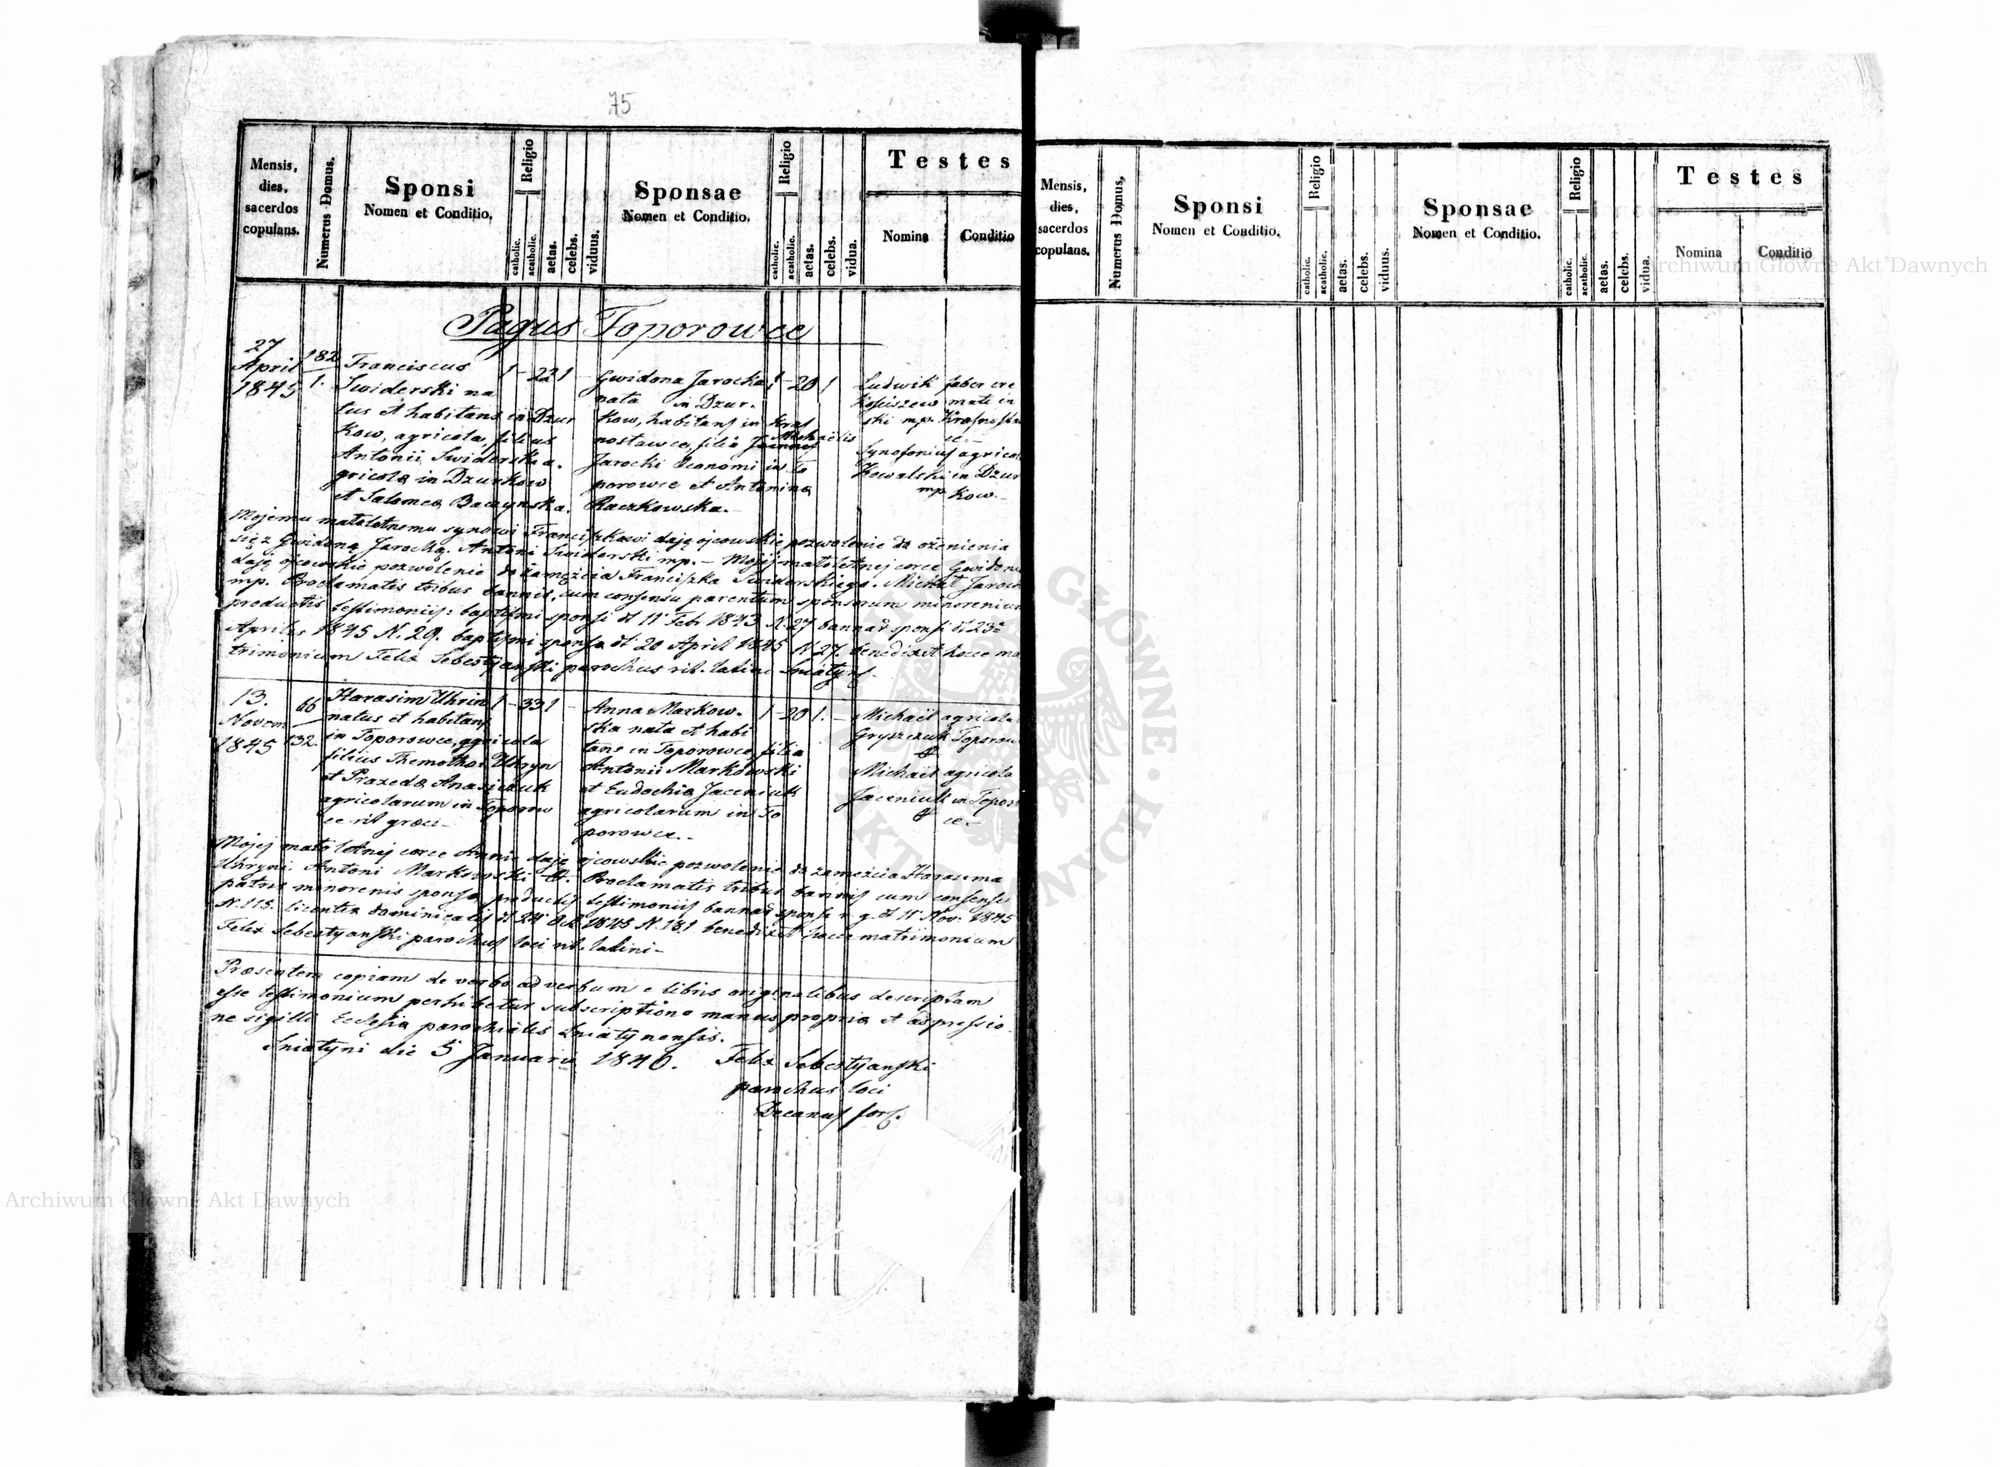 75
Mensis, dies, sacerdos copulans.
Numerus Domus.
Sponsi
Nomen et Conditio.
Religio
catholic.
acatholic.
aetas.
celebs.
viduus.
Sponsae
Nomen et Conditio.
Religio
catholic.
acatholic.
aetas.
celebs.
vidua.
Testes
Nomina
Conditio
Pagus Toporowce
27
April
1845
182
1.
Franciscus
Swiderski na
tus et habitans in Dzur
kow, agricola, filius
Antonii Swiderski a.
gricola in Dzurkow
et Salomea Baczynska.
1 - 22 1 -
Gwidona Jarocka
nata in Dzur.
kow, habitans in Kras
nostawce, filia Michaelis
Jarocki Economi in To
porowce et Antonina
Raczkowska.-
1 - 20 1
Ludwik
Kościszew
ski mp.
faber cre
mati in
Synofonius agricol
Kowalski in Dzur
mp kow.-
Mojemu małoletnemu synowi Franciszkowi dają ojcowskie pozwolenie do ożenienia
się z Gwidoną Jarocką. Antoni Swiderski mp.- Mojej małoletnej corce Gwidon
dają ojcowskie pozwolenie do zamęzcia Franciszka Swiderskiego. Michał Jaroc
mp. Proclamatis tribus bannis, cum consensu parentum sponsorum minorenium
productis testimoniis: baptismi sponsi dt 11 Febr 1843 N. 27 bannar sponsi dt 23
Aprilis 1845 N. 29. baptismi sponsa dt 20 April 1845 N 27. benedixit hocce ma
trimonium Felix Sebestyanski parochus rit. latini Sniatyn.
13.
Novem
1845
66
132.
Harasim Uhrin
natus et habitans
in Toporowce, agricola
filius Themothei Uhryn
et Prazeda Anasiczuk
agricolarum in Toporow
ce rit græci-
1 - 33 1 -
Anna Markow.
ska nata et habi
tans in Toporowce, filia
Antonii Markowski
et Eudochia Jaceniuk
agricolarum in To
porowce.-
1 - 20 1. -
Michael agricola
Gryszczuk Toporow
Michael agricola
Jaceniuk in Topor
ce-
Mojej małoletnej corce Annie daję ojcowskie pozwolenie do zamęzcia Harasima
Uhryni. Antoni Markowski +. Proclamatis tribus bannis cum consensu
patris minorenis sponsa, productis testimoniis bannar sponsi r. g. dt 11 Nov. 1845
N. 115. licentia dominicalis dt 24 Oct 1845 N. 181 benedixit hocce matrimonium
Felix Sebestyanski parochus loci rit. latini-
Præsentem copiam de verbo ad verbum e libris originalibus descriptam
esse testimonium perhibetur subscriptione manus propria et adpressio
ne sigilli Ecclesia parochialis Sniatynensis.
Sniatyni die 5 Januarii 1846.
Felix Sebestyanski
parochus loci
Decanus for.
Mensis, dies, sacerdos copulans.
Numerus Domus.
Sponsi
Nomen et Conditio.
Religio
catholic.
acatholic.
aetas.
celebs.
viduus.
Sponsae
Nomen et Conditio.
Religio
catholic.
acatholic.
aetas.
celebs.
vidua.
Testes
Nomina
Conditio
Archiwum Główne Akt Dawnych
Archiwum Główne Akt Dawnych